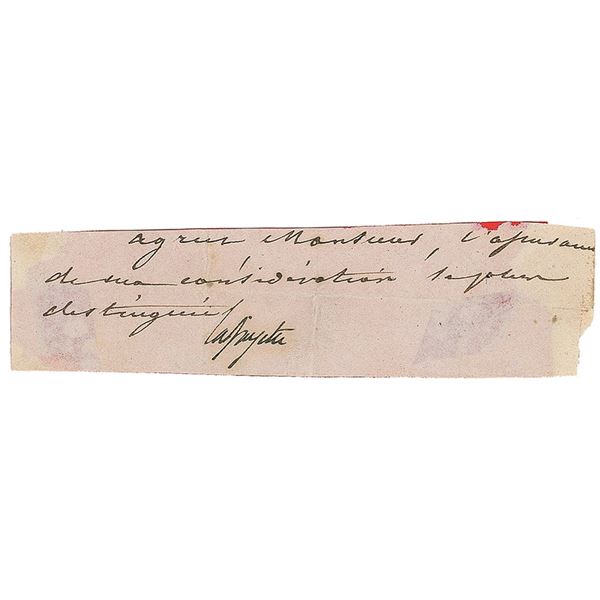 agréez Monsieur, l'assurance
de ma considération la plus
distinguée
Lafayette